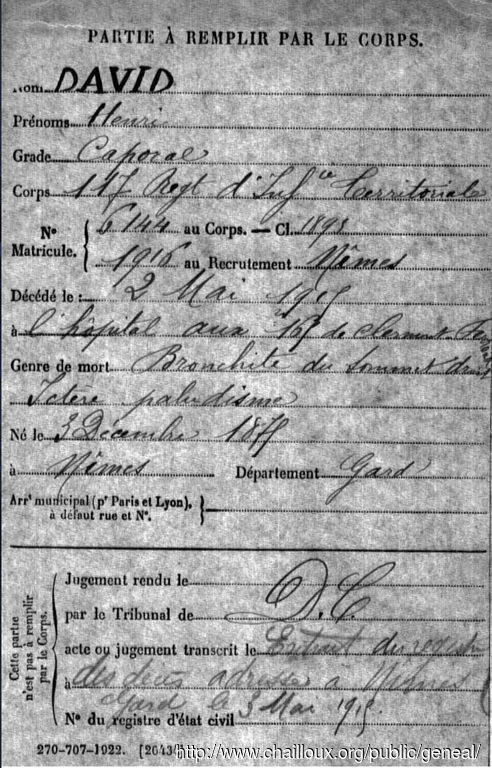 PARTIE À REMPLIR PAR LE CORPS.
Nom DAVID
Prénoms Henri
Grade Caporal
Corps 117 Regt d'Infie Territoriale
No Matricule. 6144 au Corps. — Cl. 1895
1916 au Recrutement Nîmes
Décédé le : 2 Mai 1915
à l'hôpital aux de clermont
Genre de mort Bronchite du sommet droit
Ictère paludisme
Né le 3 Décembre 1875
à Nîmes Département Gard
Arrt municipal (pr Paris et Lyon), à défaut rue et No.
Cette partie n'est pas à remplir par le Corps.
Jugement rendu le
par le Tribunal de D.C
acte ou jugement transcrit le Extrait du registre
à des deces adresse a Nimes
Gard le 3 Mai 1915
No du registre d'état civil
270-708-1922. [26434]
http://www.chailloux.org/public/geneal/